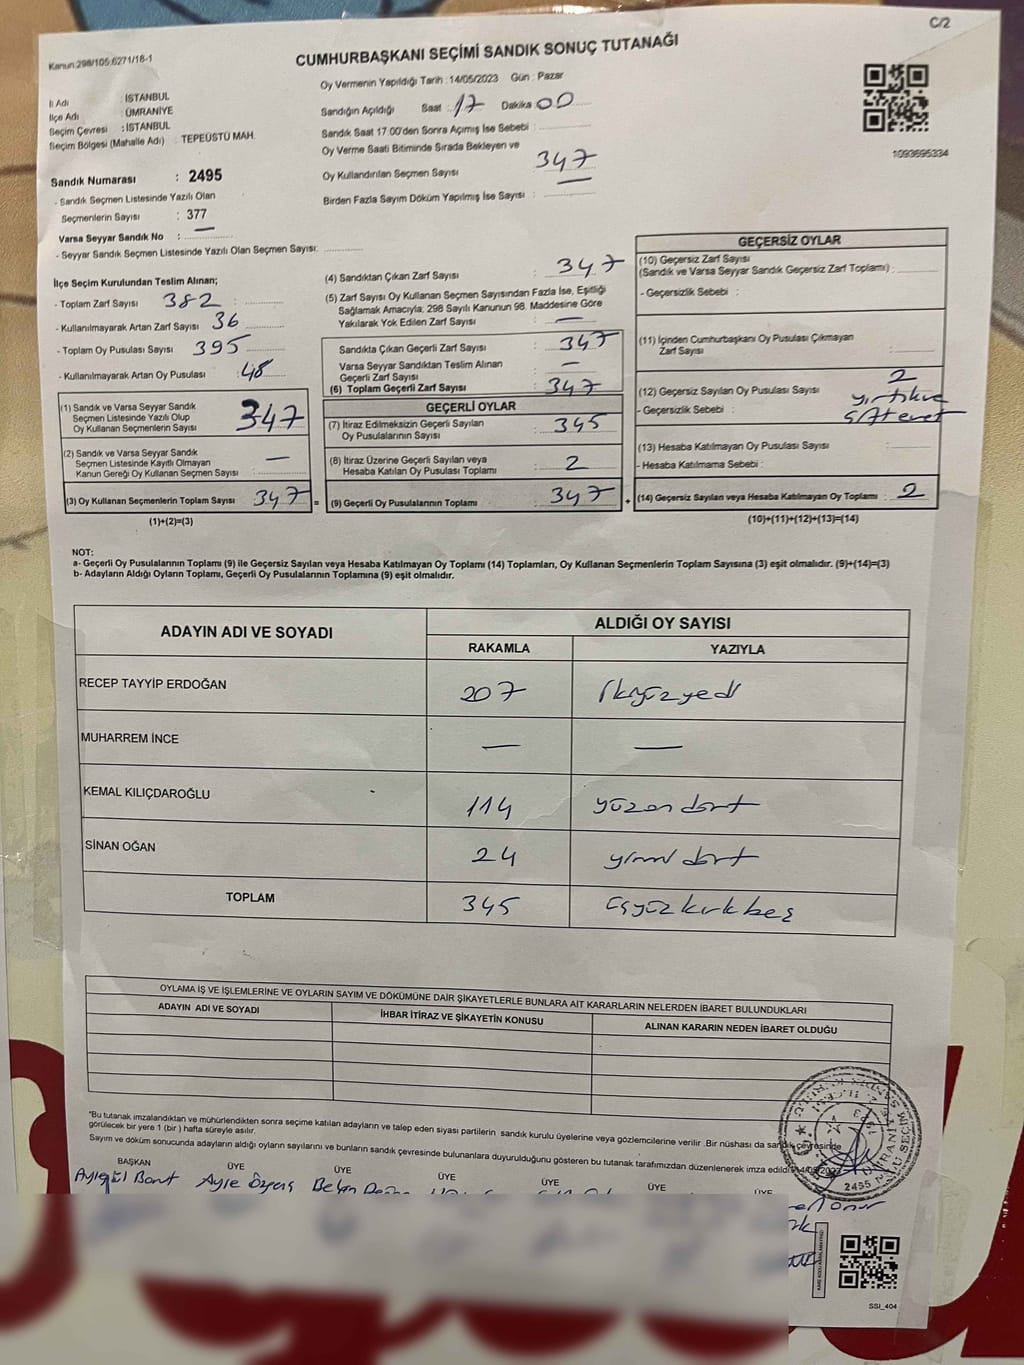 C/2
Kanun:298/105;6271/18-1
CUMHURBAŞKANI SEÇİMİ SANDIK SONUÇ TUTANAĞI
Oy Vermenin Yapıldığı Tarih : 14/05/2023 Gün : Pazar
İl Adı : İSTANBUL
İlçe Adı : ÜMRANİYE
Seçim Çevresi : İSTANBUL
Seçim Bölgesi (Mahalle Adı) : TEPEÜSTÜ MAH.
Sandığın Açıldığı Saat : 17 Dakika : 00
Sandık Saat 17:00'den Sonra Açımış İse Sebebi :
Oy Verme Saati Bitiminde Sırada Bekleyen ve
Oy Kullandırılan Seçmen Sayısı : 347
Birden Fazla Sayım Döküm Yapılmış İse Sayısı : —
1093695334
Sandık Numarası : 2495
- Sandık Seçmen Listesinde Yazılı Olan
Seçmenlerin Sayısı : 377
Varsa Seyyar Sandık No : —
- Seyyar Sandık Seçmen Listesinde Yazılı Olan Seçmen Sayısı:
İlçe Seçim Kurulundan Teslim Alınan;
- Toplam Zarf Sayısı 382
- Kullanılmayarak Artan Zarf Sayısı 36
- Toplam Oy Pusulası Sayısı 395
- Kullanılmayarak Artan Oy Pusulası : 48
(1) Sandık ve Varsa Seyyar Sandık
Seçmen Listesinde Yazılı Olup
Oy Kullanan Seçmenlerin Sayısı 347
(2) Sandık ve Varsa Seyyar Sandık
Seçmen Listesinde Kayıtlı Olmayan
Kanun Gereği Oy Kullanan Seçmen Sayısı : —
(3) Oy Kullanan Seçmenlerin Toplam Sayısı 347 =
(1)+(2)=(3)
(4) Sandıktan Çıkan Zarf Sayısı : 347
(5) Zarf Sayısı Oy Kullanan Seçmen Sayısından Fazla İse, Eşitliği
Sağlamak Amacıyla, 298 Sayılı Kanunun 98. Maddesine Göre
Yakılarak Yok Edilen Zarf Sayısı : —
Sandıkta Çıkan Geçerli Zarf Sayısı : 347
Varsa Seyyar Sandıktan Teslim Alınan
Geçerli Zarf Sayısı : —
(6) Toplam Geçerli Zarf Sayısı : 347
GEÇERLİ OYLAR
(7) İtiraz Edilmeksizin Geçerli Sayılan
Oy Pusulalarının Sayısı : 345
(8) İtiraz Üzerine Geçerli Sayılan veya
Hesaba Katılan Oy Pusulası Toplamı : 2
(9) Geçerli Oy Pusulalarının Toplamı : 347 +
GEÇERSİZ OYLAR
(10) Geçersiz Zarf Sayısı
(Sandık ve Varsa Seyyar Sandık Geçersiz Zarf Toplamı) :
- Geçersizlik Sebebi :
(11) İçinden Cumhurbaşkanı Oy Pusulası Çıkmayan
Zarf Sayısı :
(12) Geçersiz Sayılan Oy Pusulası Sayısı : 2
- Geçersizlik Sebebi : yırtık ve
(13) Hesaba Katılmayan Oy Pusulası Sayısı :
- Hesaba Katılmama Sebebi :
(14) Geçersiz Sayılan veya Hesaba Katılmayan Oy Toplamı : 2
(10)+(11)+(12)+(13)=(14)
NOT:
a- Geçerli Oy Pusulalarının Toplamı (9) ile Geçersiz Sayılan veya Hesaba Katılmayan Oy Toplamı (14) Toplamları, Oy Kullanan Seçmenlerin Toplam Sayısına (3) eşit olmalıdır. (9)+(14)=(3)
b- Adayların Aldığı Oyların Toplamı, Geçerli Oy Pusulalarının Toplamına (9) eşit olmalıdır.
ADAYIN ADI VE SOYADI ALDIĞI OY SAYISI
RAKAMLA YAZIYLA
RECEP TAYYİP ERDOĞAN 207 ikiyüzyedi
MUHARREM İNCE — —
KEMAL KILIÇDAROĞLU 114 yüzon dört
SİNAN OĞAN 24 yirmi dört
TOPLAM 345 üçyüzkırkbeş
OYLAMA İŞ VE İŞLEMLERİNE VE OYLARIN SAYIM VE DÖKÜMÜNE DAİR ŞİKAYETLERLE BUNLARA AİT KARARLARIN NELERDEN İBARET BULUNDUKLARI
ADAYIN ADI VE SOYADI İHBAR İTİRAZ VE ŞİKAYETİN KONUSU ALINAN KARARIN NEDEN İBARET OLDUĞU
*Bu tutanak imzalandıktan ve mühürlendikten sonra seçime katılan adayların ve talep eden siyasi partilerin sandık kurulu üyelerine veya gözlemcilerine verilir .Bir nüshası da sandık çevresinde
görülecek bir yere 1 (bir ) hafta süreyle asılır.
Sayım ve döküm sonucunda adayların aldığı oyların sayılarını ve bunların sandık çevresinde bulunanlara duyurulduğunu gösteren bu tutanak tarafımızdan düzenlenerek imza edildi. 14/05/2023
BAŞKAN ÜYE ÜYE ÜYE ÜYE ÜYE ÜYE
Aylegül Ayşe
2495
SSI_404